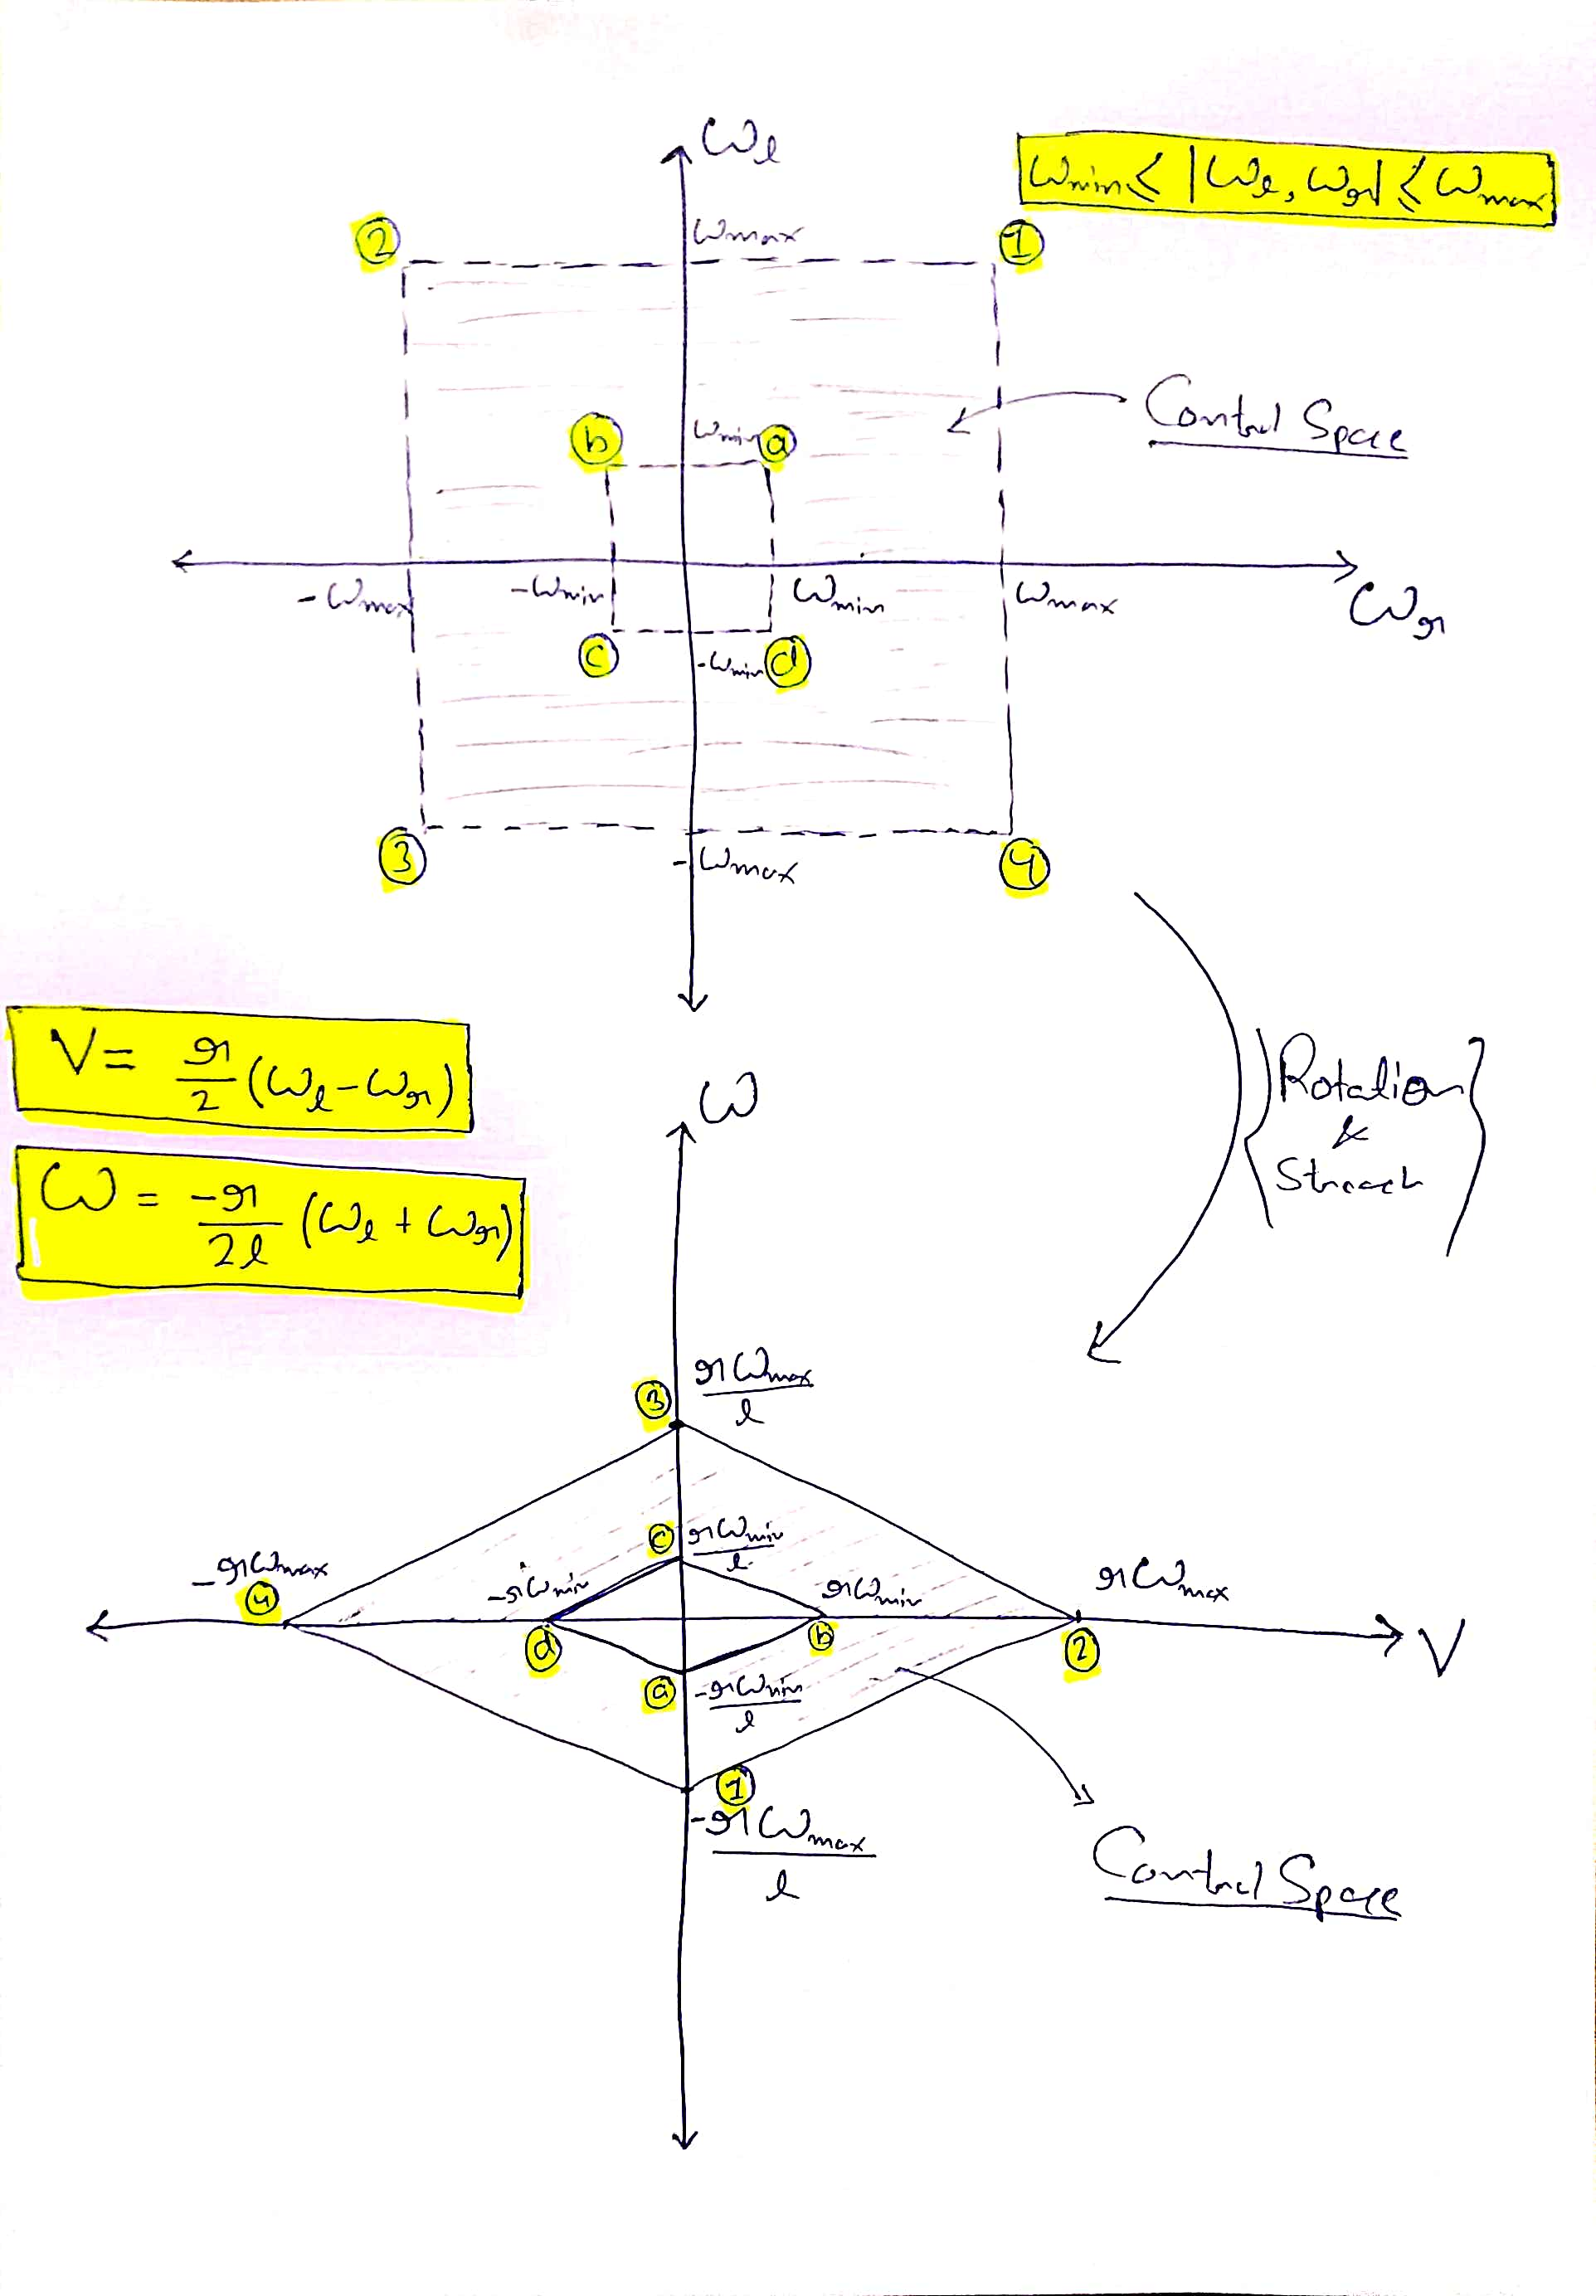 ω_l
ω_min ≤ |ω_l, ω_r| ≤ ω_max
2
ω_max
1
Control Space
b
ω_min
a
-ω_max
-ω_min
ω_min
ω_max
ω_r
c
-ω_min
d
3
-ω_max
4
V = r/2 (ω_l - ω_r)
ω
Rotation
&
ω = -r/2l (ω_l + ω_r)
3
rω_max/l
c
rω_min/l
-rω_max
4
-rω_min
rω_min
rω_max
d
b
2
V
a
-rω_min/l
1
-rω_max/l
Control Space